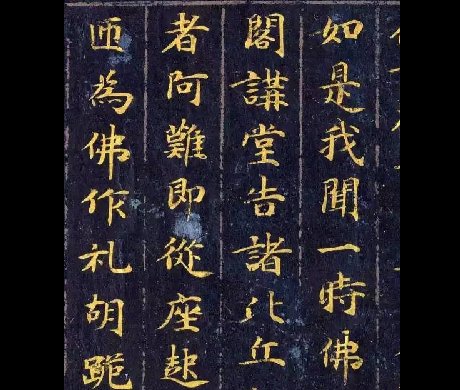 如是我聞一時佛
閣講堂告諸比丘
者阿難即從座起
匝為佛作礼胡跪